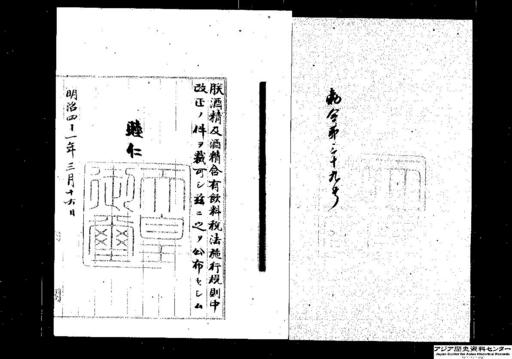 勅令第三十九号
朕酒精及酒精含有飲料税法施行規則中
改正ノ件ヲ裁可シ茲ニ之ヲ公布セシム
睦仁
天皇御璽
明治四十一年三月十六日
アジア歴史資料センター
Japan Center for Asian Historical Records